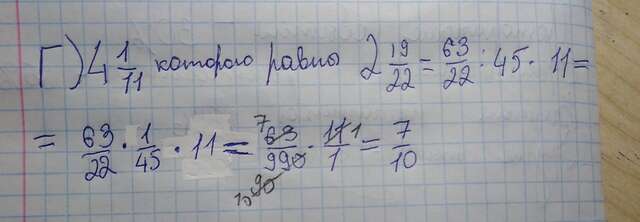 г) 4 1/11 которого равны 2 19/22 = 63/22 : 45 · 11 =
= 63/22 · 1/45 · 11 = 7 63/990 · 11/1 1 = 7/10
10 90